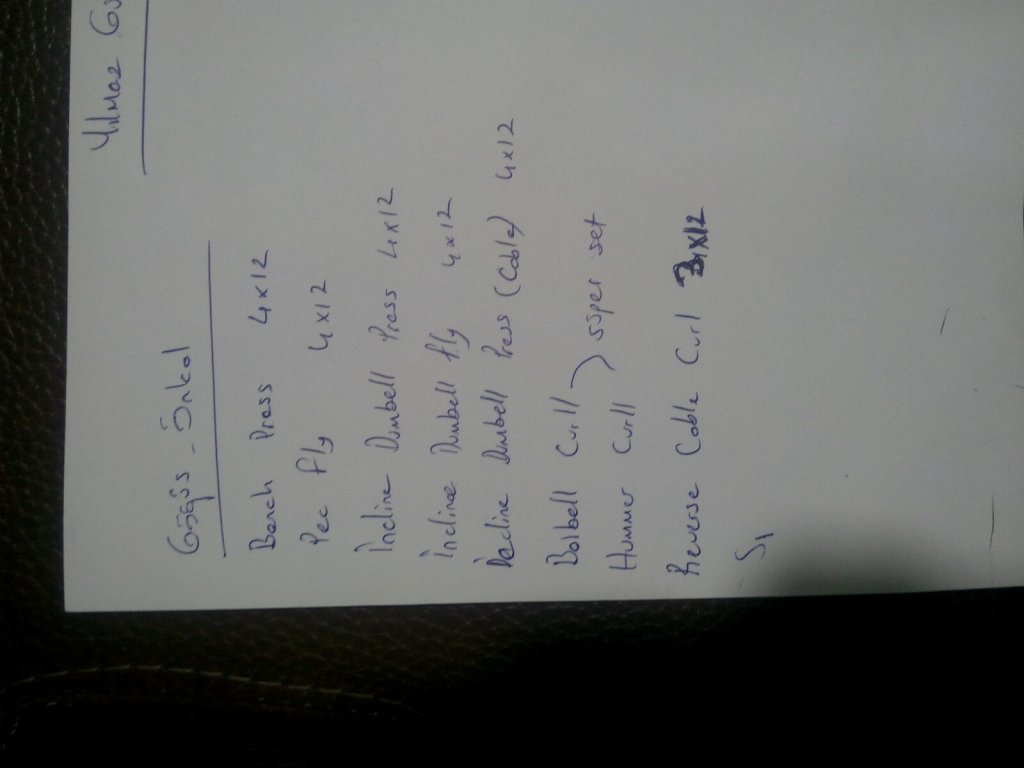 Yılmaz
Göğüs - Önkol
Bench Press 4x12
Pec fly 4x12
İncline Dumbell Press 4x12
İncline Dumbell fly 4x12
Decline Dumbell Press (Cable) 4x12
Barbell Curll
süper set
Hummer Curll
Reverse Cable Curl 3x12